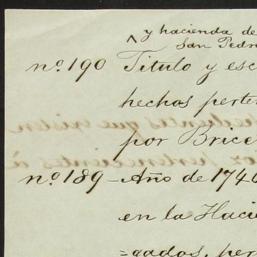 y hacienda de
San Pedro
nº. 190 Titulo y esc
hechos perte
por Brice
nº. 189 - Año de 174
en la Haci
=gados, per